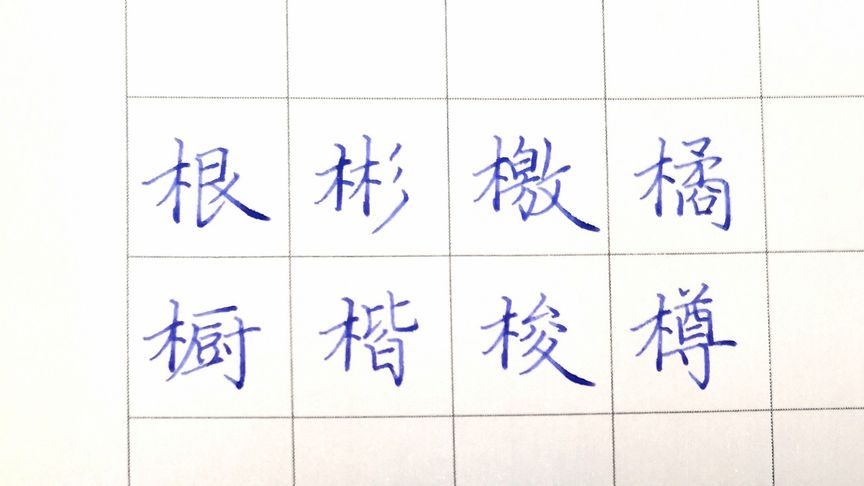 根彬檄橘
橱楷梭樽